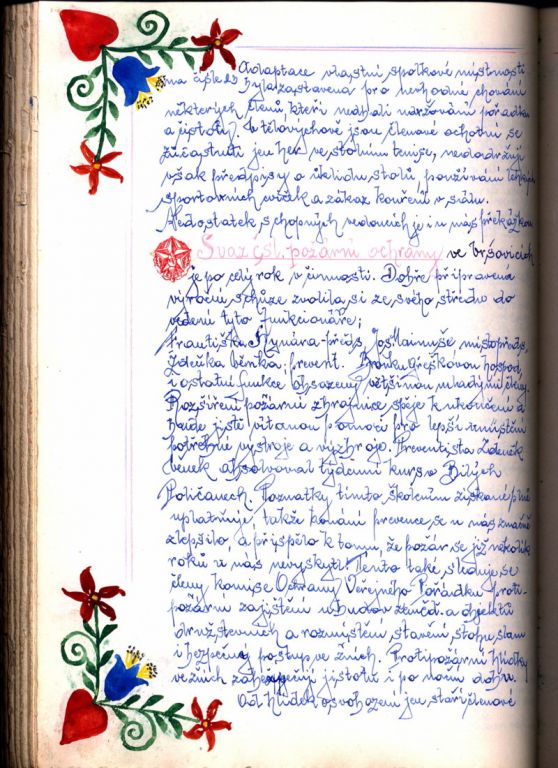 Adaptace vlastní spolkové místnosti
na čísle 29 byla zastavena pro nevhodné chování
některých členů, kteří nedbali udržování pořádku
a jistoty. V tělovýchově jsou členové ochotni se
zúčastniti jen her ve stolním tenise, nedodržují
však předpisy o úklidu stolů, používání lehkých
sportovních triček a zákaz kouření v sálu.
Nedostatek schopných vedoucích je i u nás překážkou.
Svaz čsl. požární ochrany ve Vršovicích
je po celý rok v činnosti. Dobře připravená
výroční schůze zvolila si ze svého středu do
vedení tyto funkcionáře;
Františka Kynára - předs., Jos. místopředs.,
Zdeňka běňka, prevent. hospod.
i ostatní funkce obsazeny většinou mladými členy.
Rozšíření požární zbrojnice spěje k ukončení a
bude jistě vítanou pomocí pro lepší umístění
potřebné výstroje a výzbroje. Preventista Zdeněk
běněk absolvoval týdenní kurs v Bílých
Poličanech. Poznatky tímto školením získané plně
uplatňuje, takže konání prevence se u nás značně
zlepšilo, a přispělo k tomu, že požár se již několik
roků u nás nevyskytl. Tento také sleduje se
členy komise Ochrany Veřejného Pořádku proti-
požární zajištění u budov zeměd. a objektů
družstevních a rozmístění, stavení stohů slámy
i bezpečný postup ve žních. Protipožární hlídky
ve žních zabezpečují jistotu i po noční dobu.
Od hlídek osvobozeni jen starší členové